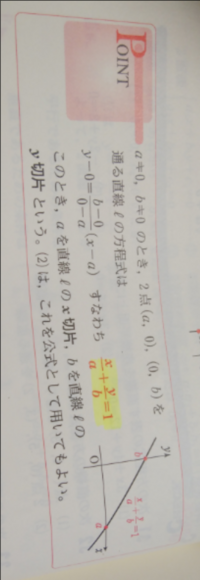 POINT
a≠0, b≠0 のとき, 2点(a, 0), (0, b)を
通る直線ℓの方程式は
y-0=\frac{b-0}{0-a}(x-a) すなわち \frac{x}{a}+\frac{y}{b}=1
このとき, aを直線ℓのx切片, bを直線ℓの
y切片という。(2)は, これを公式として用いてもよい。
y
b
\frac{x}{a}+\frac{y}{b}=1
O
a
x